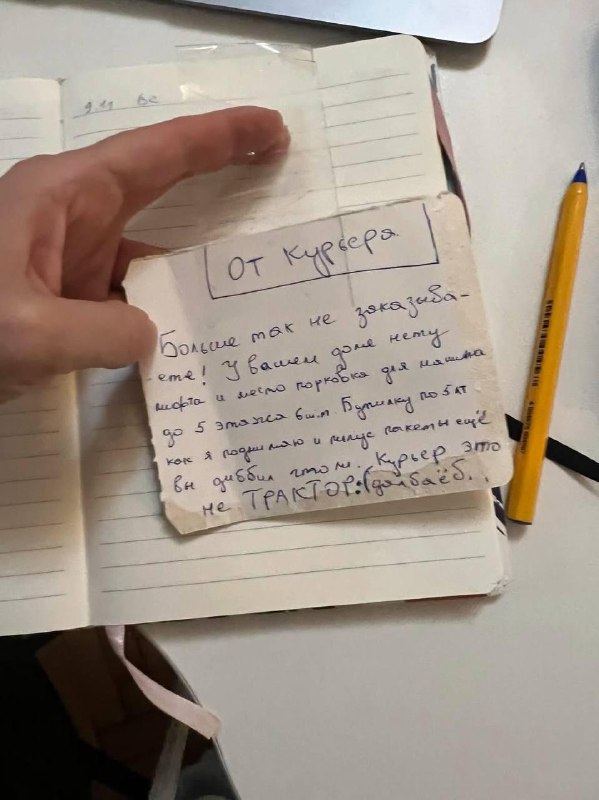 9.11 вс
от курьера
Больше так не заказыва-
ете! У вашем доме нету
лифта и место парковка для машина
до 5 этажа 6 шт. Бутилку по 5 лт
как я поднимаю и плюс пакеты ещё
вы диббил что ли. Курьер это
не ТРАКТОР:( долбаёб.